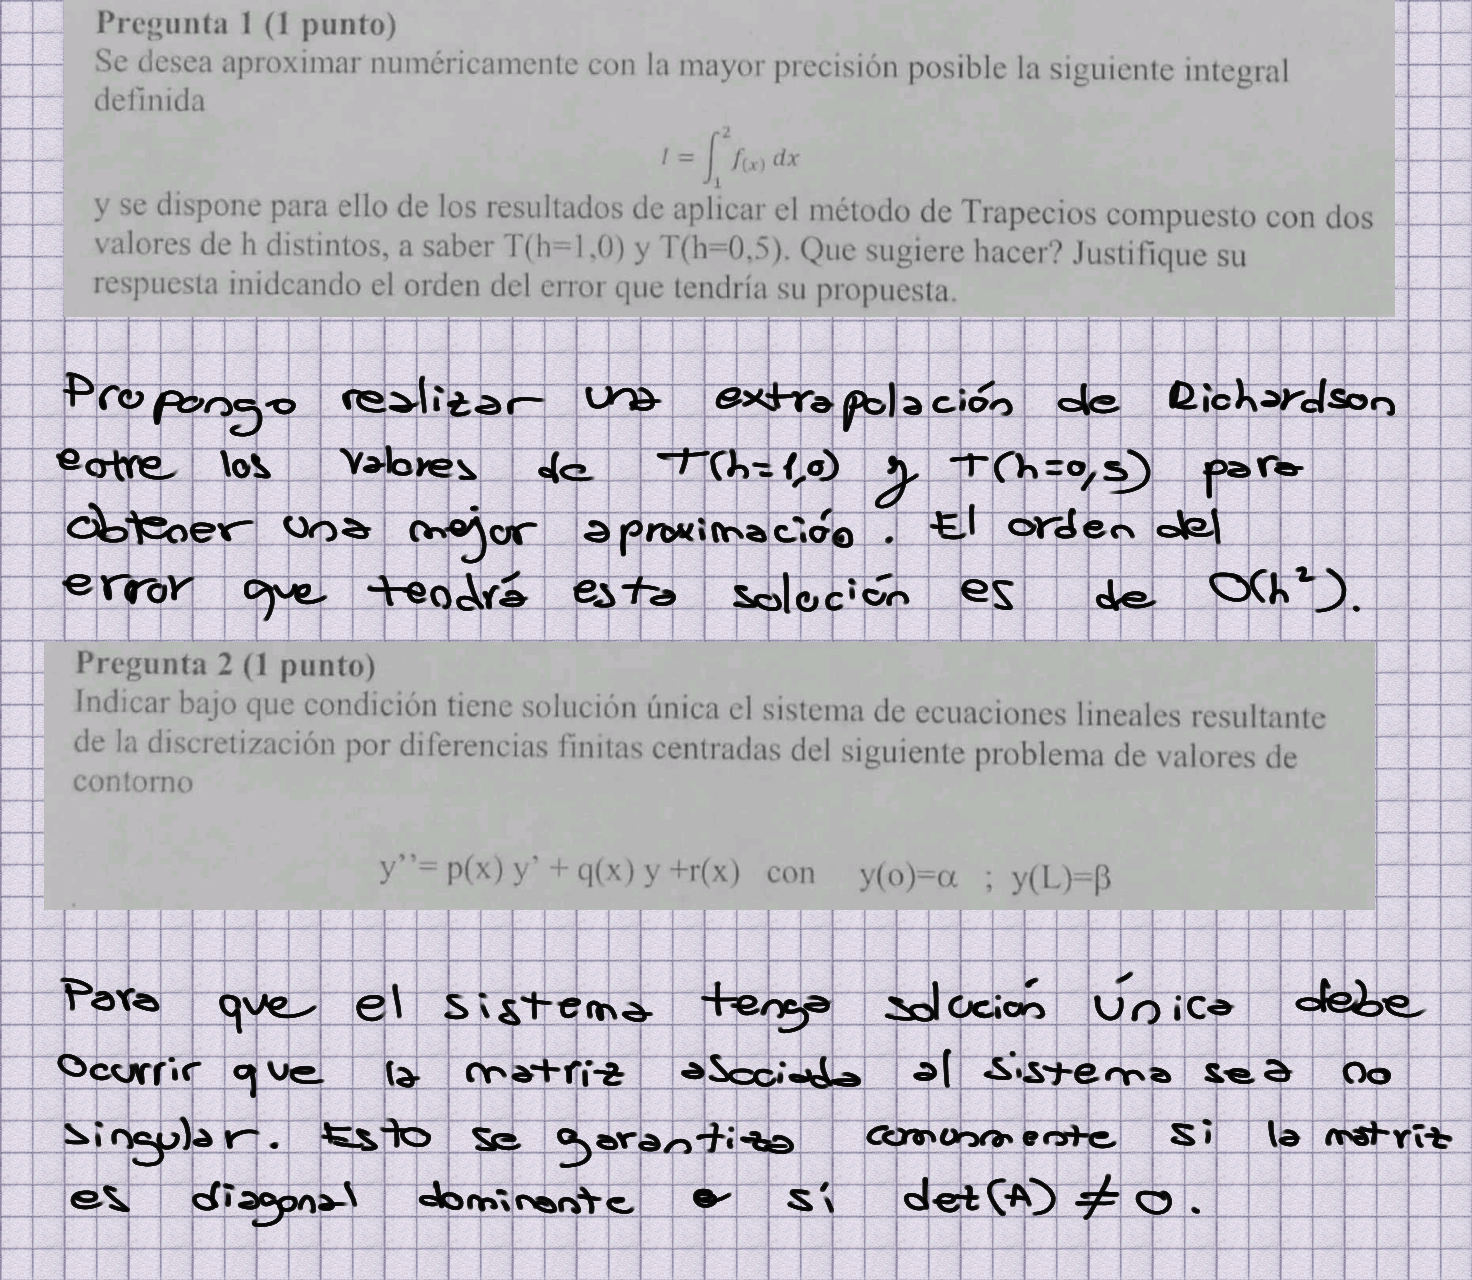 Pregunta 1 (1 punto)
Se desea aproximar numéricamente con la mayor precisión posible la siguiente integral
definida
I = ∫₁² f(x) dx
y se dispone para ello de los resultados de aplicar el método de Trapecios compuesto con dos
valores de h distintos, a saber T(h=1,0) y T(h=0,5). Que sugiere hacer? Justifique su
respuesta inidcando el orden del error que tendría su propuesta.
Propongo realizar una extrapolación de Richardson
entre los valores de T(h=1,0) y T(h=0,5) para
obtener una mejor aproximación. El orden del
error que tendrá esta solución es de O(h²).
Pregunta 2 (1 punto)
Indicar bajo que condición tiene solución única el sistema de ecuaciones lineales resultante
de la discretización por diferencias finitas centradas del siguiente problema de valores de
contorno
y’’= p(x) y’ + q(x) y +r(x) con y(o)=α ; y(L)=β
Para que el sistema tenga solución única debe
ocurrir que la matriz asociada al sistema sea no
singular. Esto se garantiza comunmente si la matriz
es diagonal dominante o si det(A) ≠ 0.